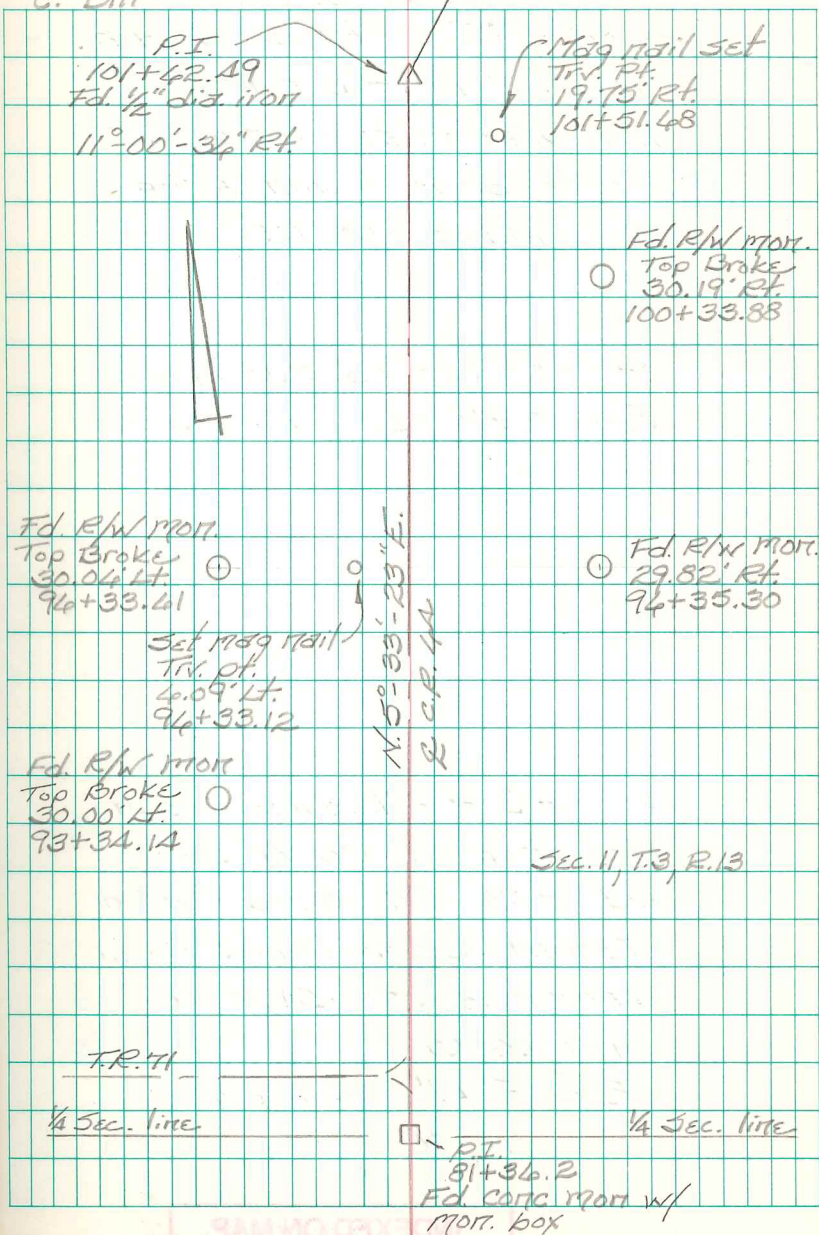 P.I.
101+62.49
Fd. 1/2" dia. iron
11°-00'-36" Rt.
Mag nail set
Trv. Pt.
19.75' Rt.
101+51.68
Fd. R/W mon.
Top Broke
30.19' Rt.
100+33.88
Fd. R/W mon.
Top Broke
30.04' Lt.
96+33.41
Fd. R/W mon.
29.82' Rt.
96+35.30
Set mag nail
Trv. pt.
Lt.
96+33.12
N.5°-33'-23"E.
℄ C.R.
Fd. R/W mon
Top Broke
30.00' Lt.
93+34.14
Sec. 11, T.3, R.13
T.R. 71
1/4 Sec. line
1/4 Sec. line
P.I.
81+36.2
Fd. conc mon w/
mon. box